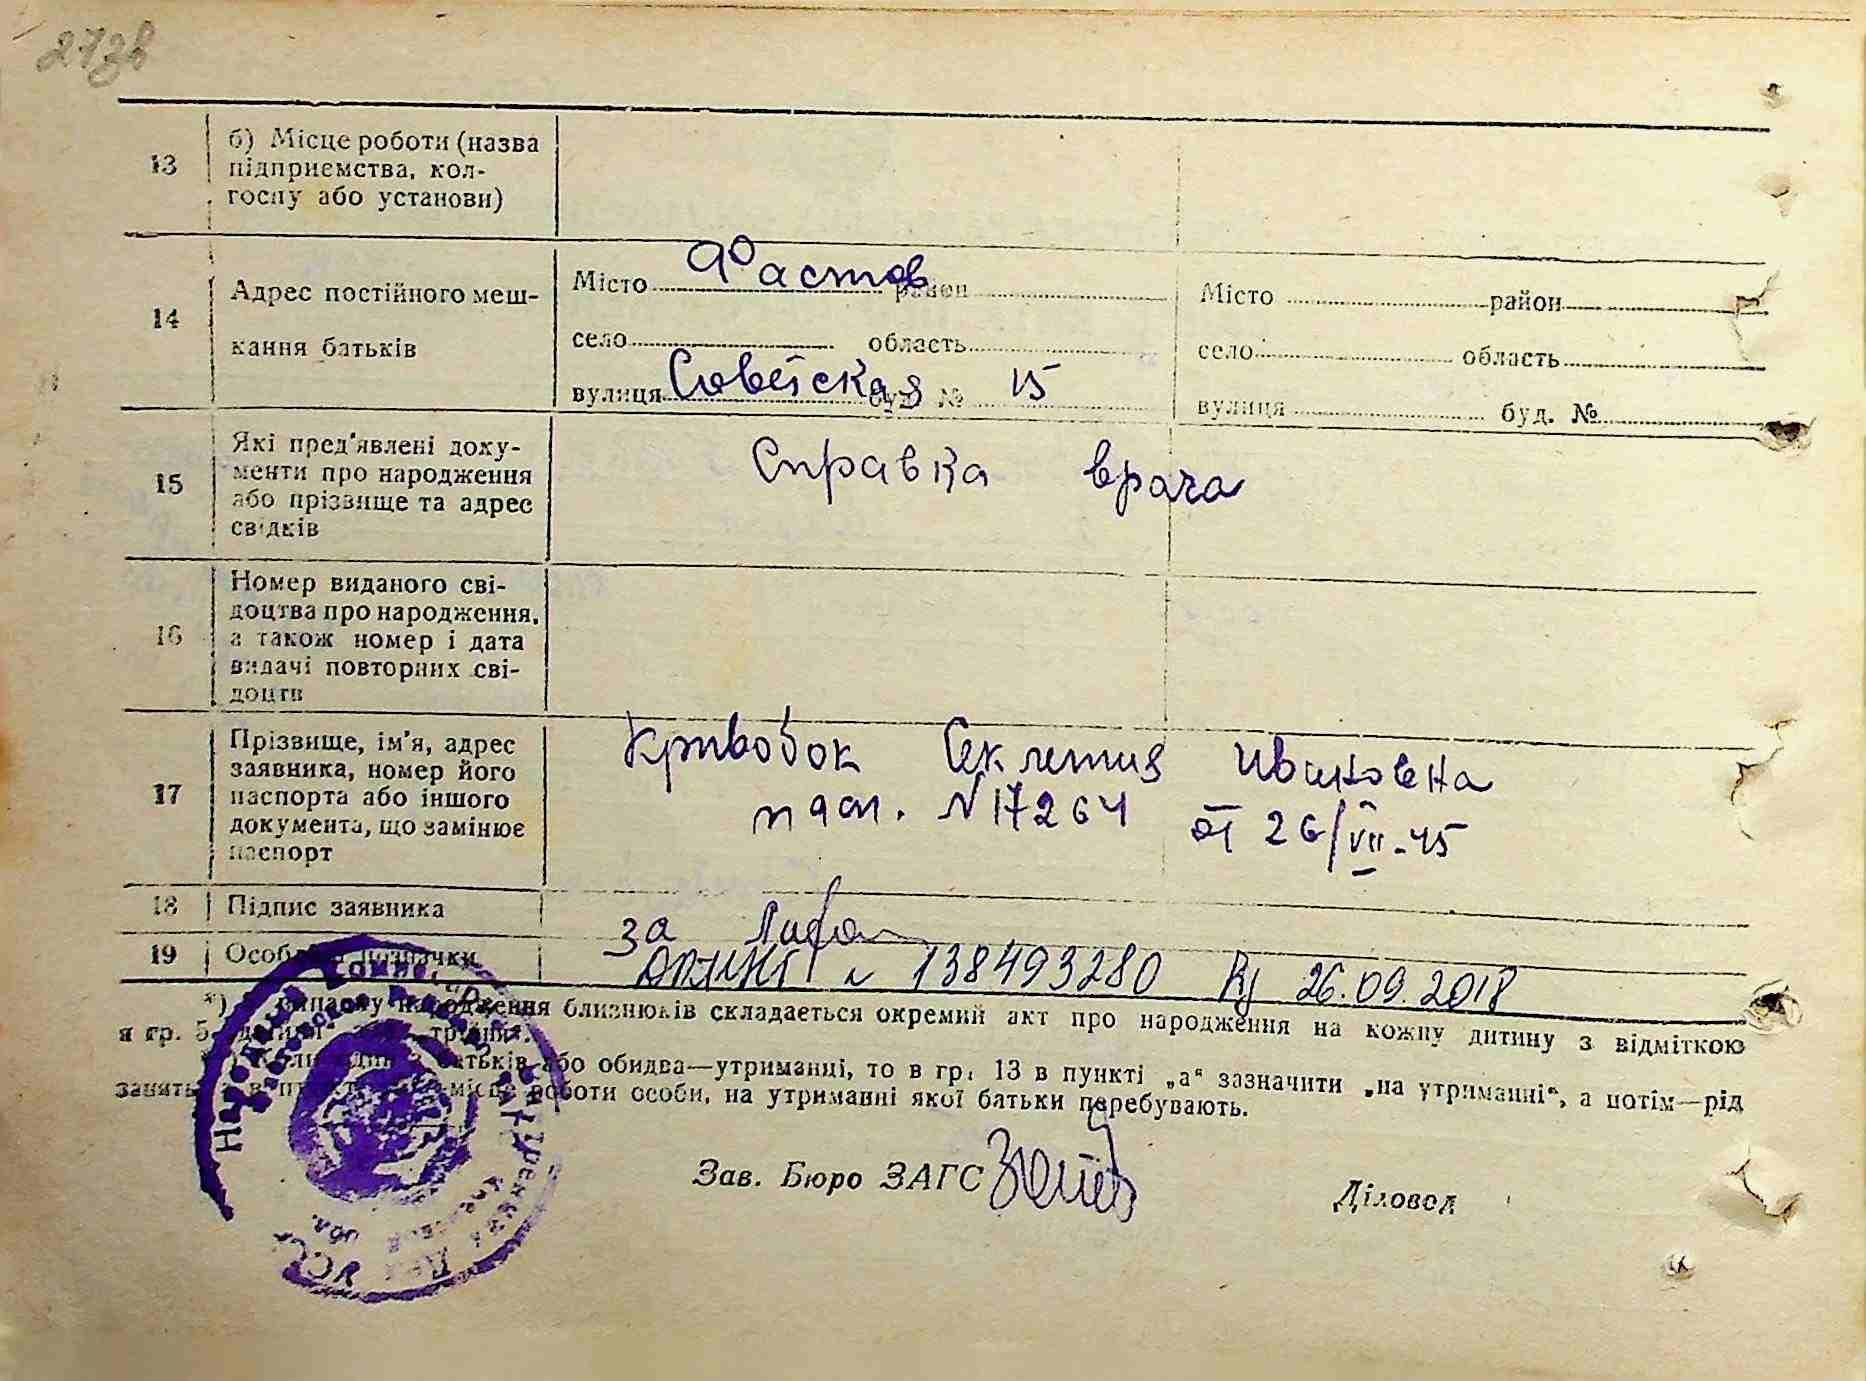 273в
13
б) Місце роботи (назва
підприємства, кол-
госпу або установи)
14
Адрес постійного меш-
кання батьків
Місто Фастов район
село область
вулиця Советская буд. № 15
Місто район
село область
вулиця буд. №
15
Які пред'явлені доку-
менти про народження
або прізвище та адрес
свідків
Справка врача
16
Номер виданого сві-
доцтва про народження,
а також номер і дата
видачі повторних сві-
доцтв
17
Прізвище, ім'я, адрес
заявника, номер його
паспорта або іншого
документа, що замінює
паспорт
Кривобок Секлетия Ивановна
пасп. N 17264 от 26/VII-45
18
Підпис заявника
за
19
Особливі позначки
138493280 26.09.2018
*) У випадку народження близнюків складається окремий акт про народження на кожну дитину з відміткою
в гр. 5 „двійня“ або „трійня“.
Коли один з батьків або обидва—утриманці, то в гр. 13 в пункті „а“ зазначити „на утриманні“, а потім—рід
занять в місце роботи особи, на утриманні якої батьки перебувають.
Зав. Бюро ЗАГС
Діловод